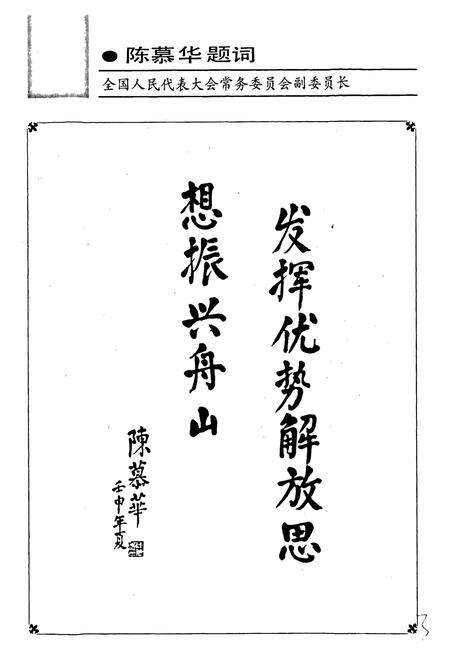 ●陈慕华题词
全国人民代表大会常务委员会副委员长
发挥优势解放思
想振兴舟山
陳慕華
壬申年夏
3